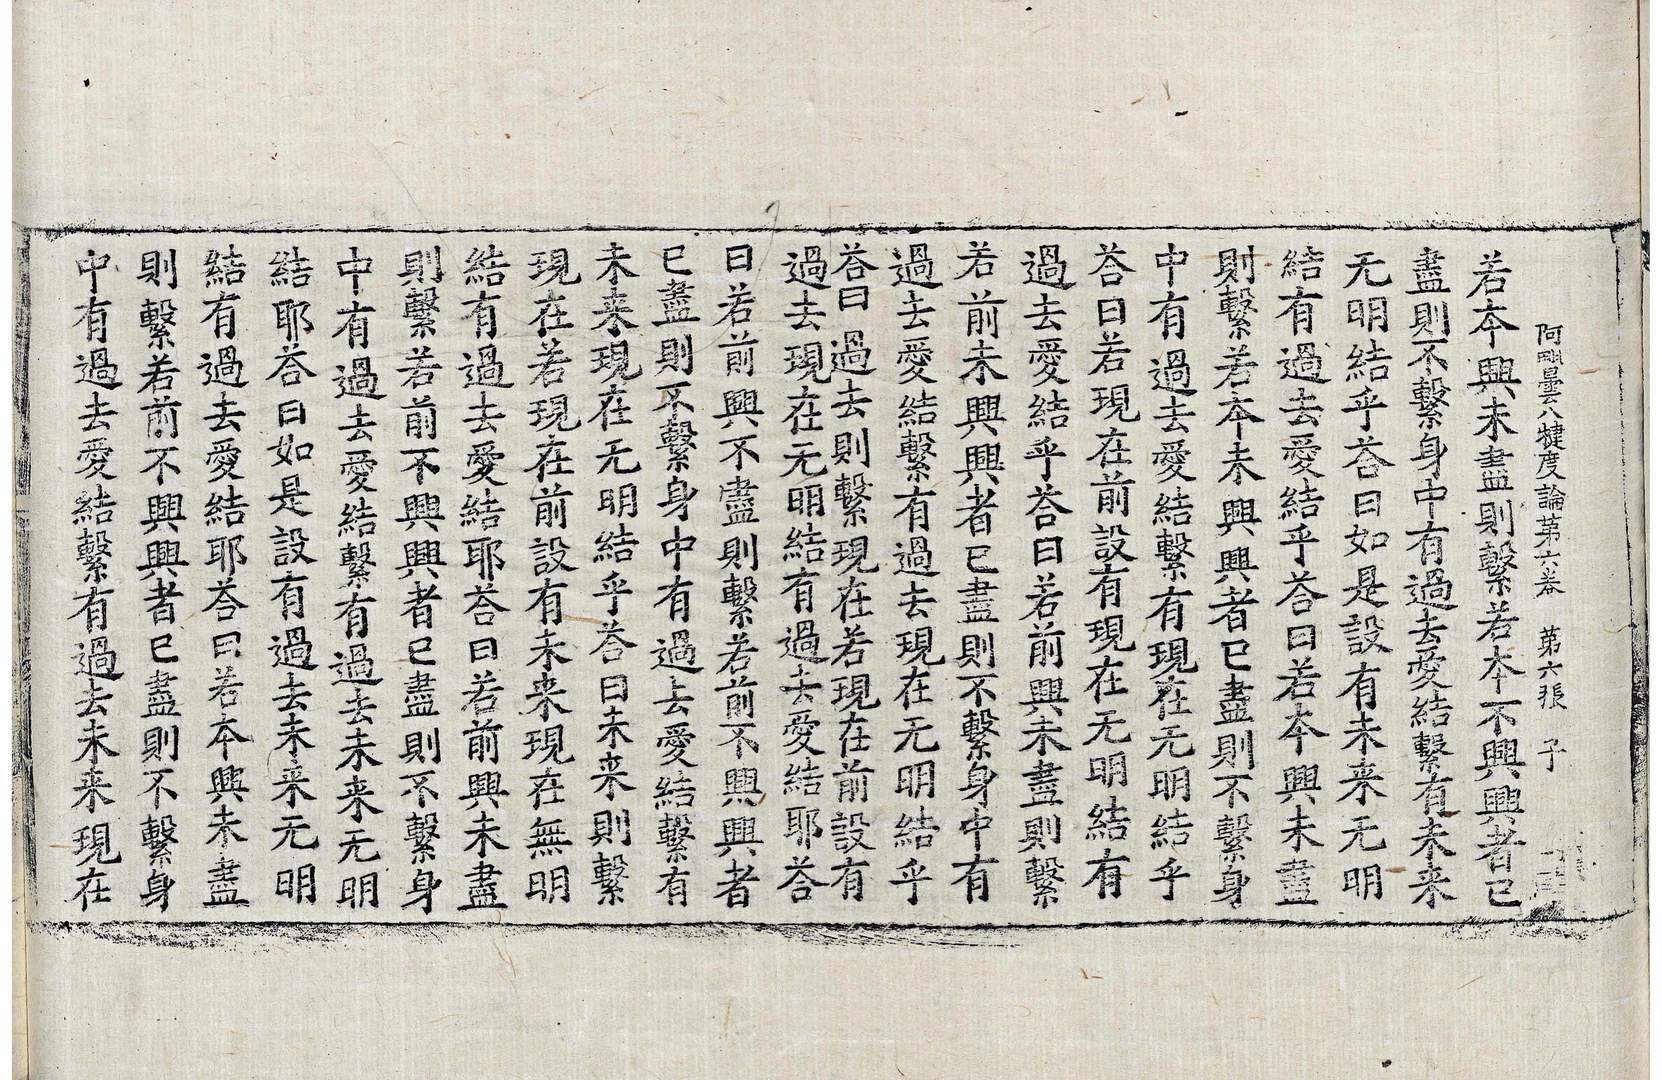 阿毗曇八犍度論第六卷 第六張 子
若本興未盡則繫若本不興興者已
盡則不繫身中有過去愛結繫有未来
无明結乎荅曰如是設有未来无明
結有過去愛結乎荅曰若本興未盡
則繫若本未興興者已盡則不繫身
中有過去愛結繫有現在无明結乎
荅曰若現在前設有現在无明結有
過去愛結乎荅曰若前興未盡則繫
若前未興興者已盡則不繫身中有
過去愛結繫有過去現在无明結乎
荅曰過去則繫現在若現在前設有
過去現在无明結有過去愛結耶荅
曰若前興不盡則繫若前不興興者
已盡則不繫身中有過去愛結繫有
未来現在无明結乎荅曰未来則繫
現在若現在前設有未来現在無明
結有過去愛結耶荅曰若前興未盡
則繫若前不興興者已盡則不繫身
中有過去愛結繫有過去未来无明
結耶荅曰如是設有過去未来无明
結有過去愛結耶荅曰若本興未盡
則繫若前不興興者已盡則不繫身
中有過去愛結繫有過去未来現在